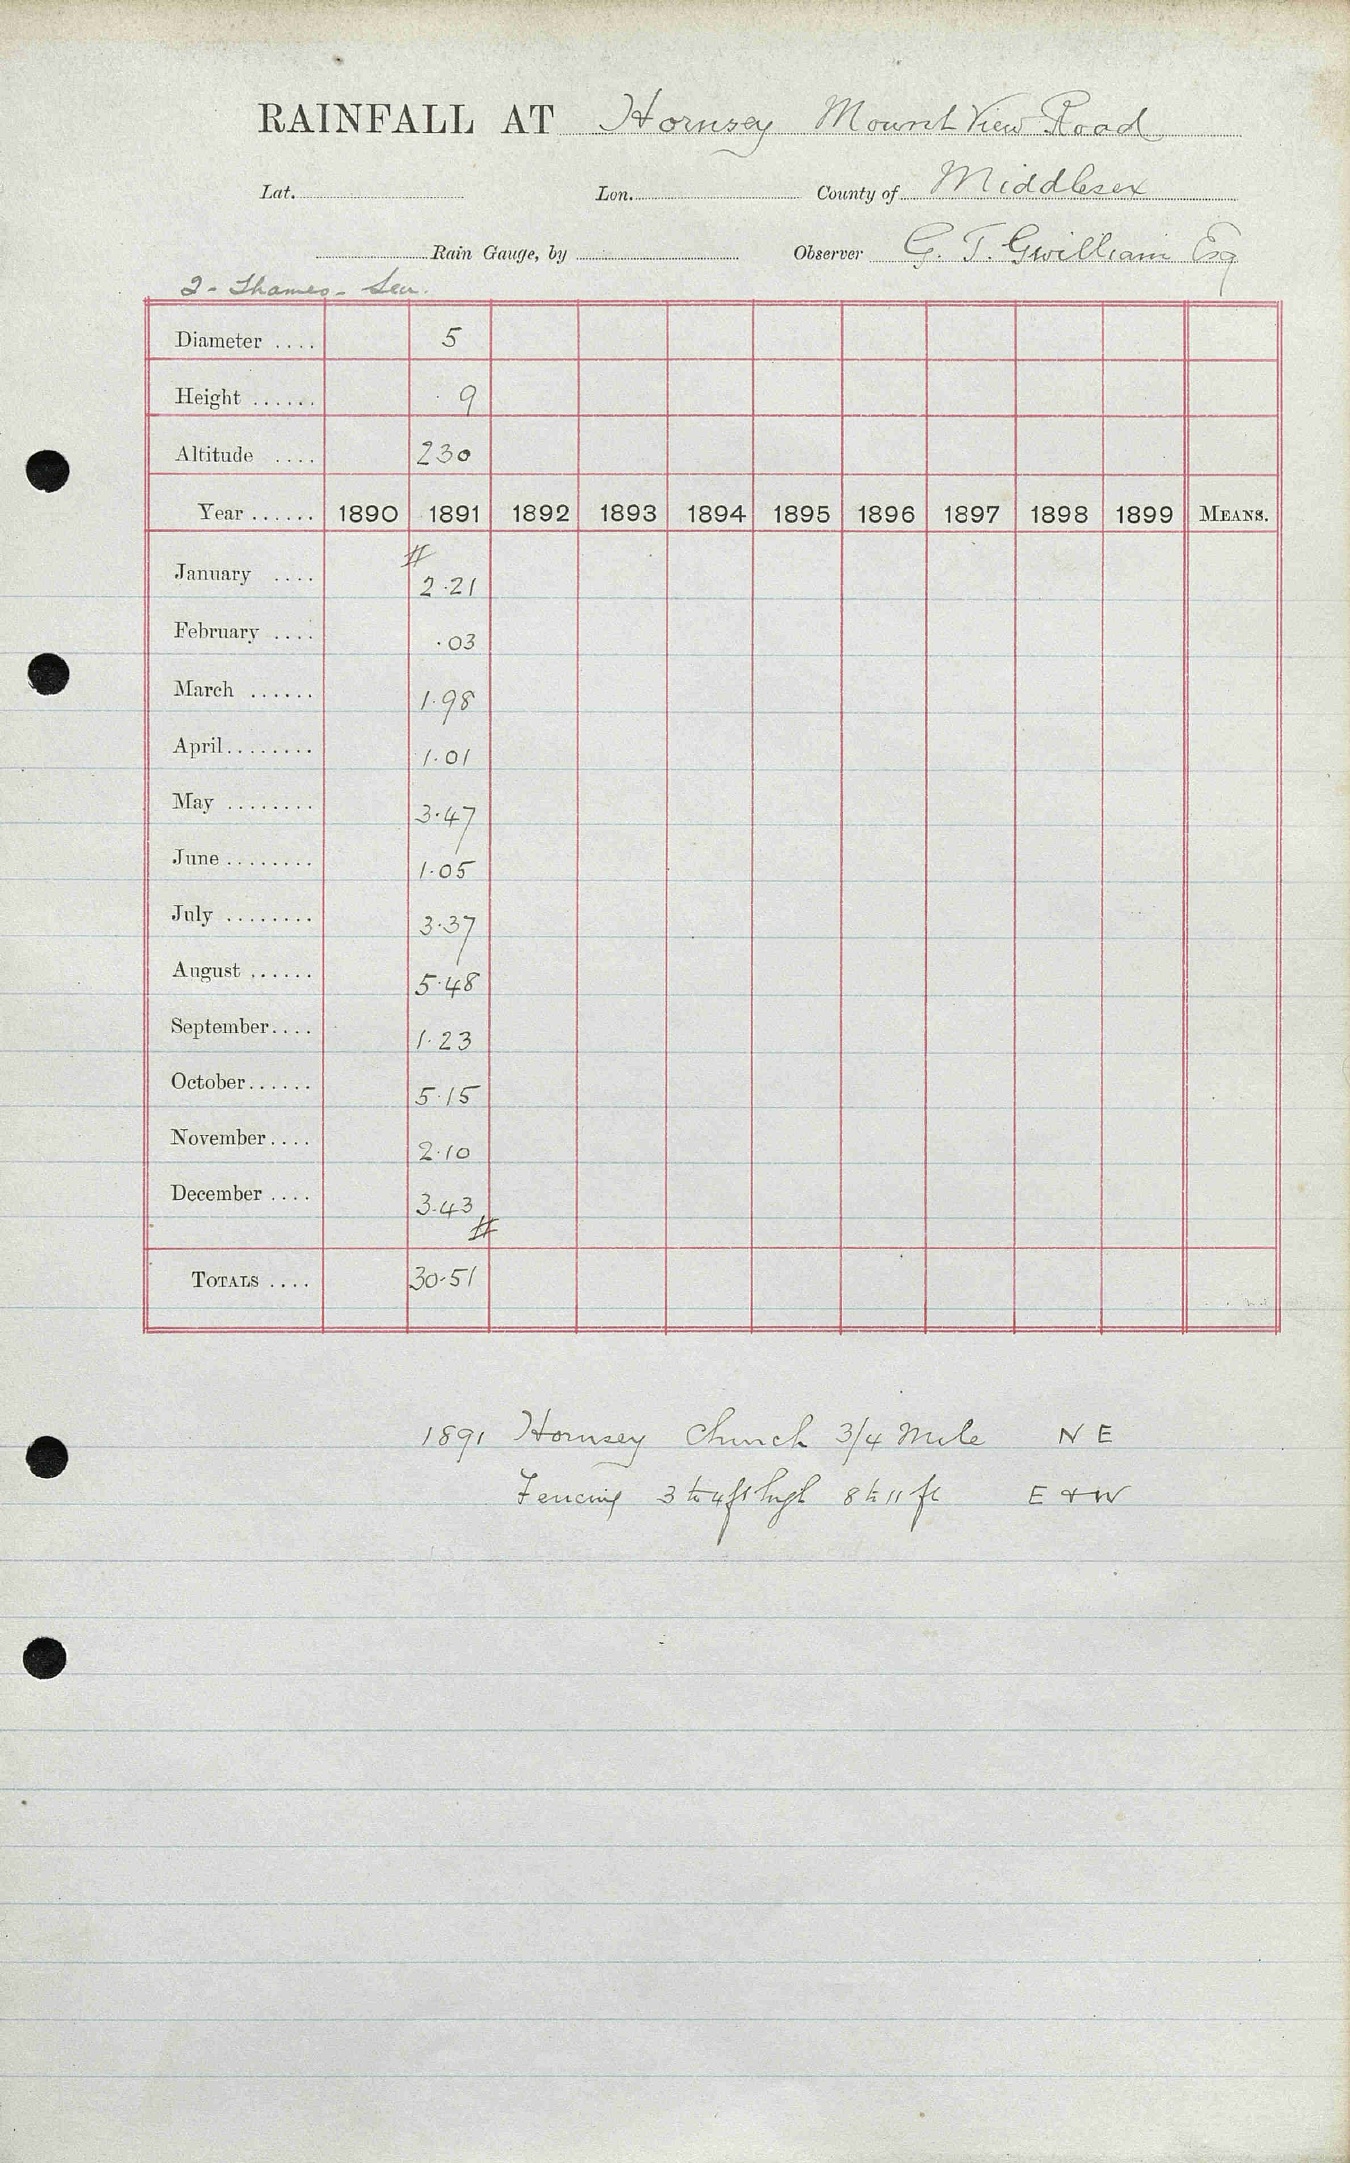 RAINFALL AT Hornsey Mount View Road
Lat. Lon. County of Middlesex
Rain Gauge, by Observer G. T. Gwilliam Esq
2 - Thames - Lea.
Diameter .... 5
Height ...... 9
Altitude .... 230
Year ...... 1890 1891 1892 1893 1894 1895 1896 1897 1898 1899 MEANS.
#
January .... 2.21
February .... .03
March ...... 1.98
April ........ 1.01
May ........ 3.47
June ........ 1.05
July ........ 3.37
August ...... 5.48
September .... 1.23
October ...... 5.15
November .... 2.10
December .... 3.43
#
TOTALS .... 30.51
1891 Hornsey Church 3/4 Mile N E
Fencing 3 to 4 ft high 8 to 11 ft E & W